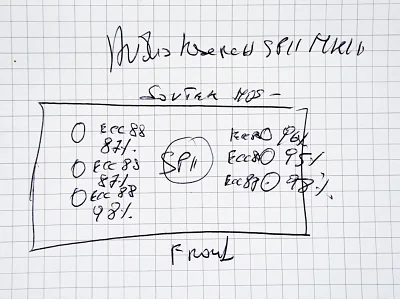 Audio Research SP11 MKII
SOVTEK NOS -
ECC88
87%
ECC88
87%
ECC88
98%
SP11
96%
95%
98%
Front